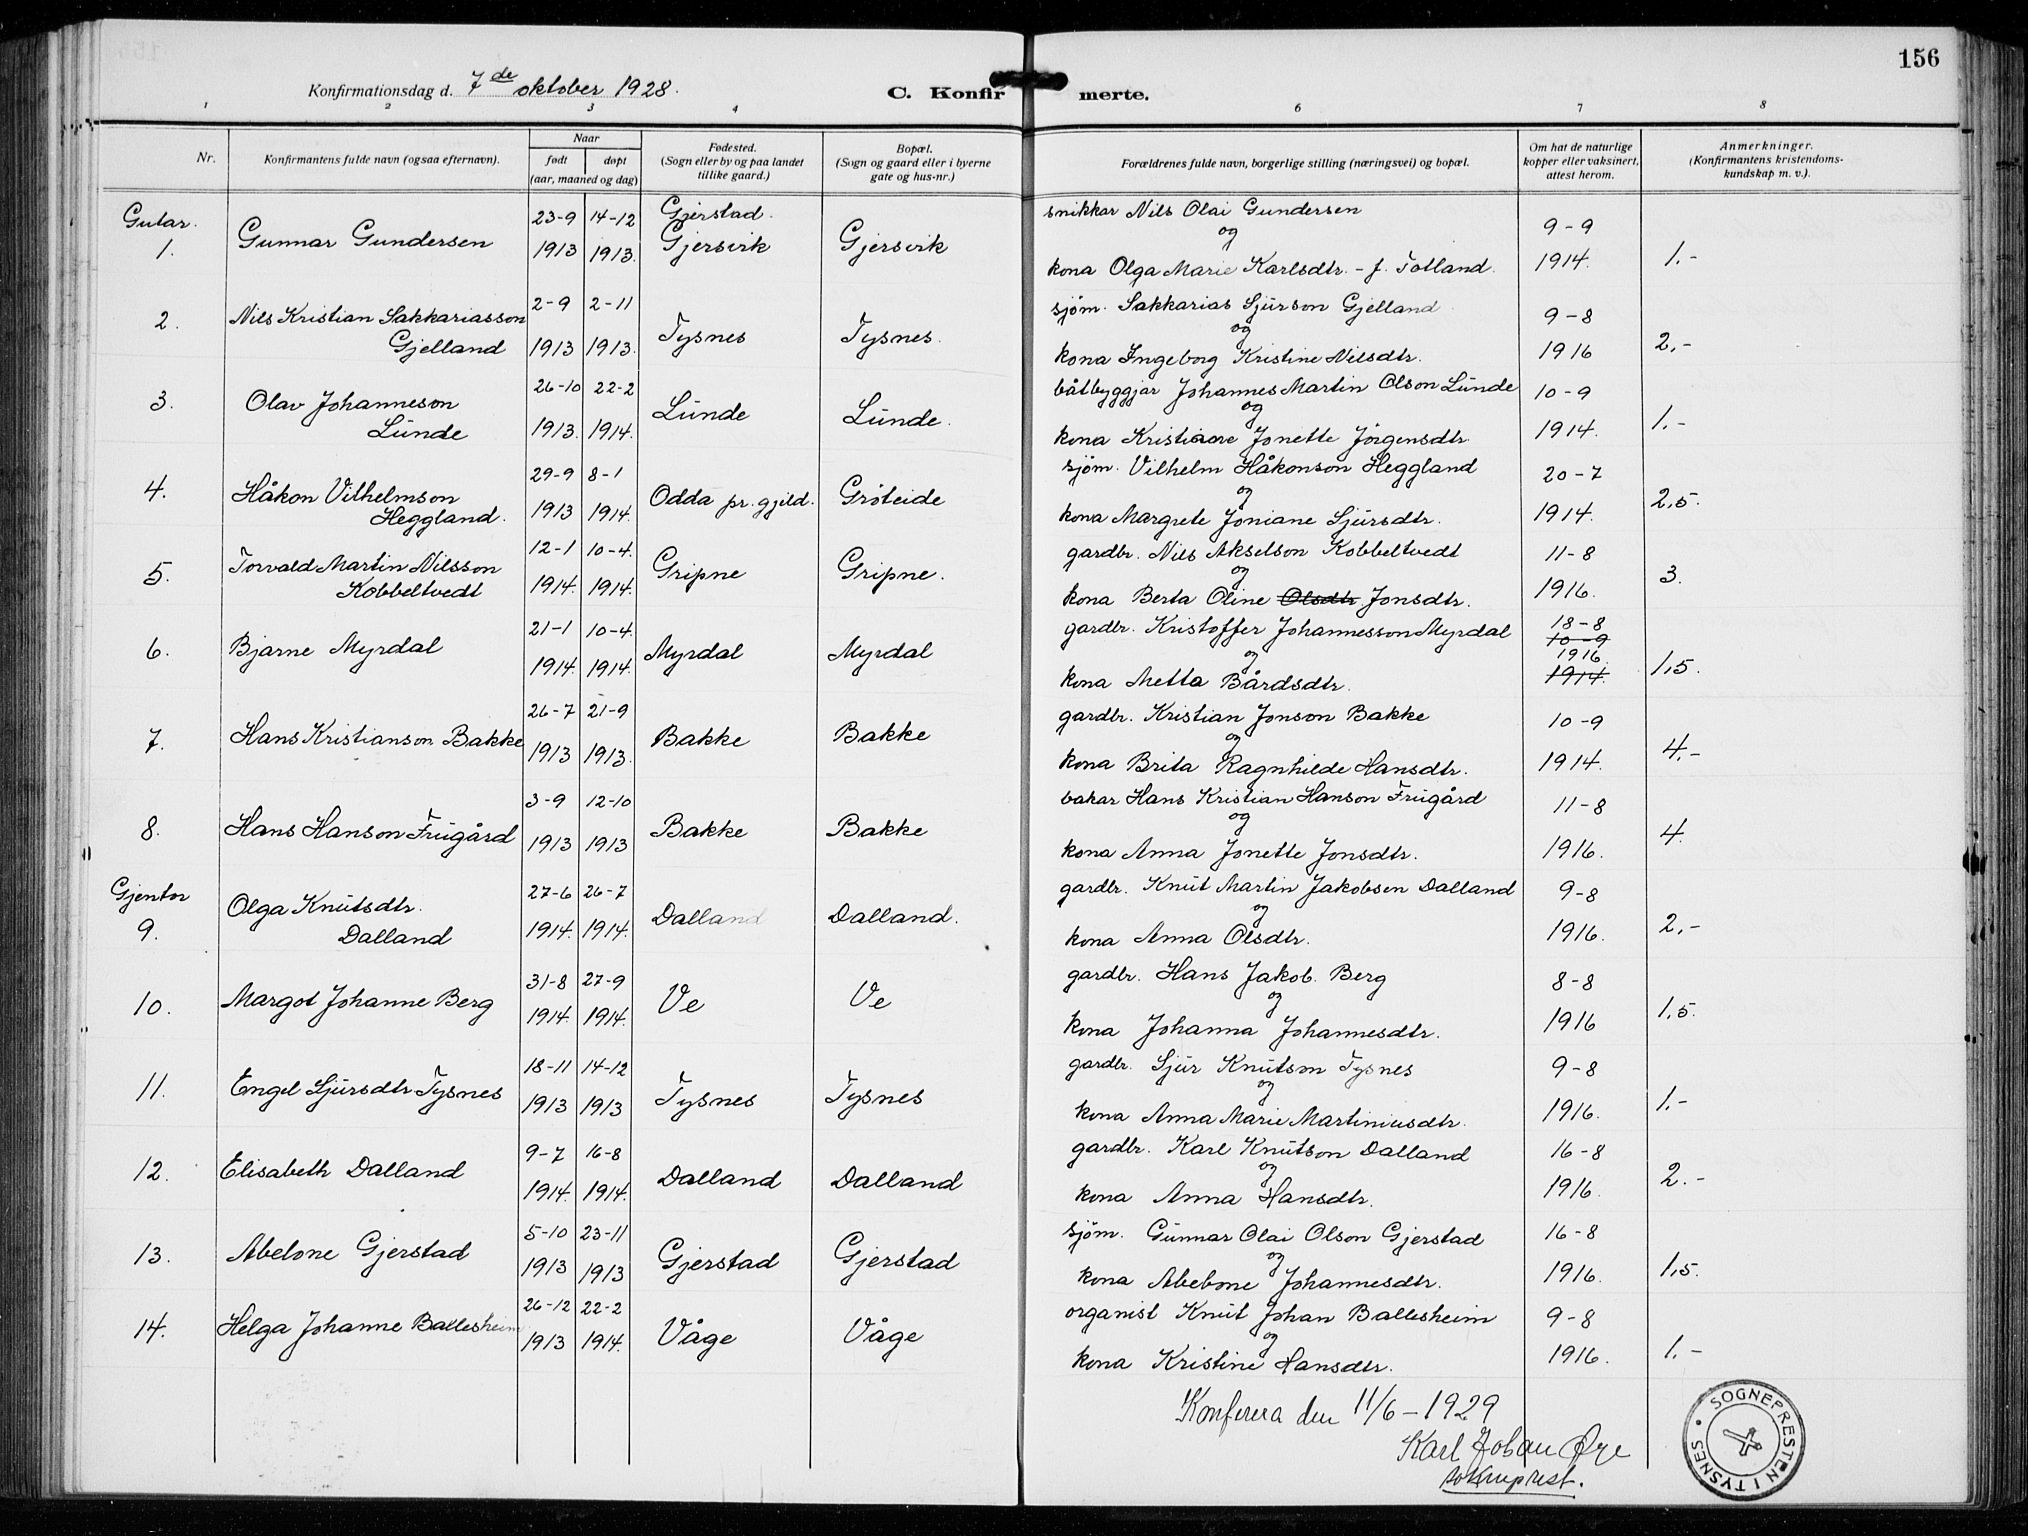 156
Konfirmationsdag d. 7de oktober 1928.
C. Konfirmerte.
1 2 3 4 6 7 8
Nr.
Konfirmantens fulde navn (ogsaa efternavn).
Naar
født døpt
(aar, maaned og dag)
Fødested.
(Sogn eller by og paa landet
tillike gaard.)
Bopæl.
(Sogn og gaard eller i byerne
gate og hus-nr.)
Forældrenes fulde navn, borgerlige stilling (næringsvei) og bopæl.
Om hat de naturlige
kopper eller vaksinert,
attest herom.
Anmerkninger.
(Konfirmantens kristendoms-
kundskap m. v.).
Gutar. 23-9 14-12 Gjerstad. snikkar Nils Olai Gundersen 9-9
1. Gunnar Gundersen 1913 1913. Gjersvik Gjersvik og
kona Olga Marie Karlsdtr. - f. Totland. 1914. 1.-
2. Nils Kristian Sakkariasson 2-9 2-11 sjøm. Sakkarias Sjurson Gjelland 9-8
Gjelland 1913 1913. Tysnes Tysnes. og
kona Ingeborg Kristine Nilsdtr. 1916 2,-
3. Olav Johanneson 26-10 22-2 båtbyggjar Johannes Martin Olson Lunde 10-9
Lunde 1913. 1914. Lunde Lunde. og
kona Kristiane Jonette Jörgensdtr. 1914. 1.-
4. Håkon Vilhelmson 29-9 8-1 sjöm. Vilhelm Håkonson Heggland 20-7
Heggland. 1913 1914. Odda pr. gjeld. Gröteide og
kona Margrete Joniane Sjursdtr. 1914. 2,5.
5. Torvald Martin Nilsson 12-1 10-4. gardbr. Nils Akselson Kobbeltvedt 11-8
Kobbeltvedt 1914. 1914. Gripne Gripne. og
kona Berta Oline Olsdtr Jonsdtr. 1916. 3.
6. Bjarne Myrdal 21-1 10-4. gardbr. Kristoffer Johannesson Myrdal 18-8
10-9
1914. 1914. Myrdal Myrdal og 1916.
kona Metta Bårdsdtr. 1914. 1,5.
7. Hans Kristianson Bakke 26-7 21-9 gardbr. Kristian Jonson Bakke 10-9
1913 1913. Bakke Bakke og
kona Brita Ragnhilde Hansdtr. 1914. 4.-
8. Hans Hanson Frugård 3-9 12-10 bakar Hans Kristian Hanson Frugård 11-8
1913 1913 Bakke Bakke og
kona Anna Jonette Jonsdtr. 1916. 4.
Gjentor 27-6 26-7 gardbr. Knut Martin Jakobsen Dalland 9-8
9. Olga Knutsdtr. Dalland Dalland. og
Dalland 1914. 1914. kona Anna Olsdtr. 1916. 2,-
10. Margot Johanne Berg 31-8 27-9 gardbr. Hans Jakob. Berg 8-8
1914. 1914. Ve Ve og
kona Johanna Johannesdtr. 1916 1,5.
11. Engel Sjursdtr Tysnes 18-11 14-12 gardbr. Sjur Knutson Tysnes 9-8
1913 1913 Tysnes Tysnes og
kona Anna Marie Martiniusdtr. 1916. 1.-
12. Elisabeth Dalland 9-7 16-8 gardbr. Karl Knutson Dalland 16-8
1914. 1914. Dalland Dalland og
kona Anna Hansdtr. 1916. 2.-
13. Abelone Gjerstad 5-10 23-11 sjöm. Gunnar Olai Olson Gjerstad 16-8
1913 1913 Gjerstad Gjerstad og
kona Abelone Johannesdtr. 1916. 1,5.
14. Helga Johanne Ballesheim 26-12 22-2 organist Knut Johan Ballesheim 9-8
1913 1914. Våge Våge og
kona Kristine Hansdtr. 1916. 1.-
Konferera den 11/6-1929
Karl Johan Øye
sokneprest.
SOGNEPRESTEN I TYSNES